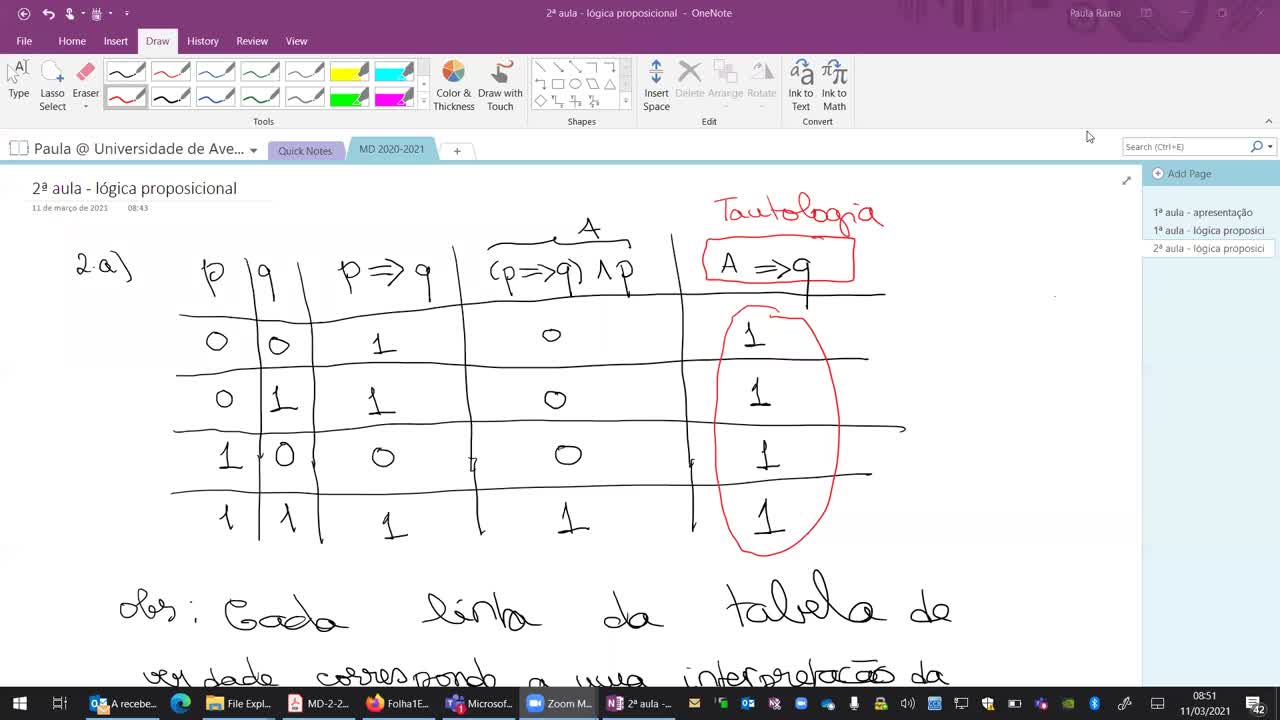 2ª aula - lógica proposicional - OneNote
Paula Rama
File Home Insert Draw History Review View
Type
Lasso Select
Eraser
Color & Thickness
Draw with Touch
Insert Space
Delete Arrange Rotate
Ink to Text
Ink to Math
Tools Shapes Edit Convert
Paula @ Universidade de Ave...
Quick Notes
MD 2020-2021
+
Search (Ctrl+E)
2ª aula - lógica proposicional
11 de março de 2021 08:43
Add Page
1ª aula - apresentação
1ª aula - lógica proposici
2ª aula - lógica proposici
Tautologia
A
2.a) p q p => q (p=>q) ∧ p A => q
0 0 1 0 1
0 1 1 0 1
1 0 0 0 1
1 1 1 1 1
obs: Cada linha da tabela de
verdade corresponde a uma interpretação da
A recebe...
File Expl...
MD-2-2...
Folha1E...
Microsof...
Zoom M...
2ª aula -...
08:51
11/03/2021
42